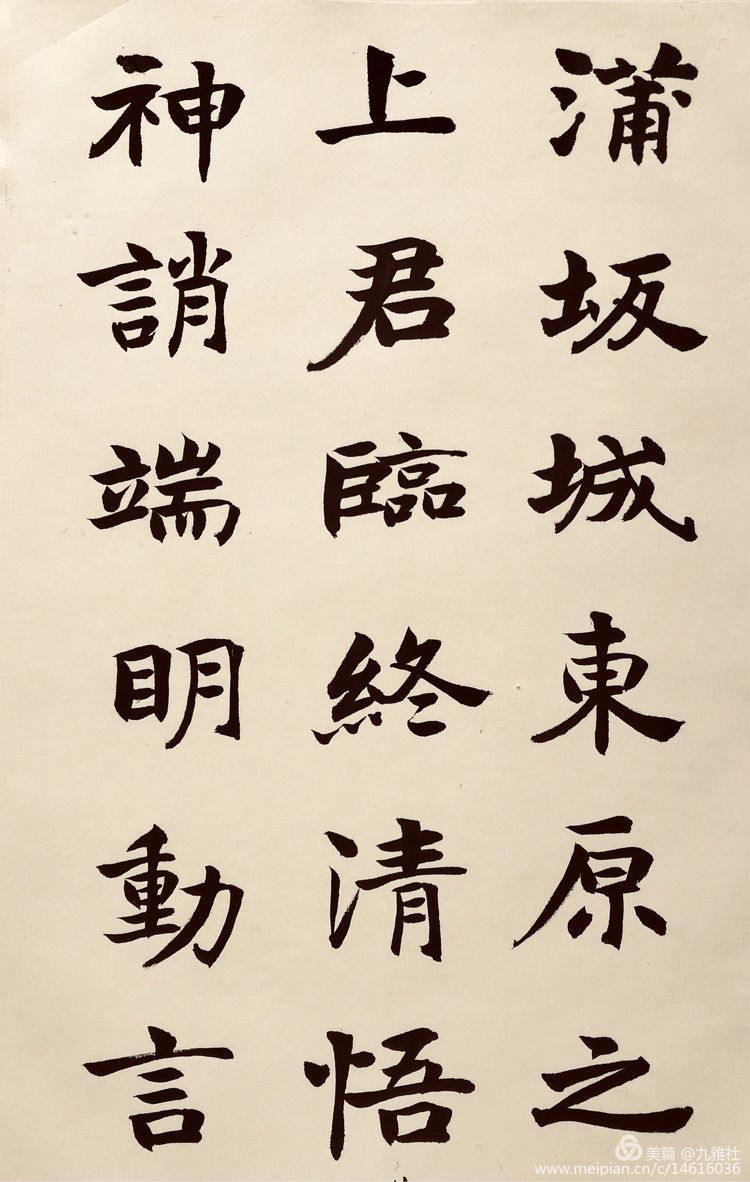 蒲坂城東原之
上君臨終清悟
神誚端明動言
美篇 @九雅社
www.meipian.cn/c/14616036